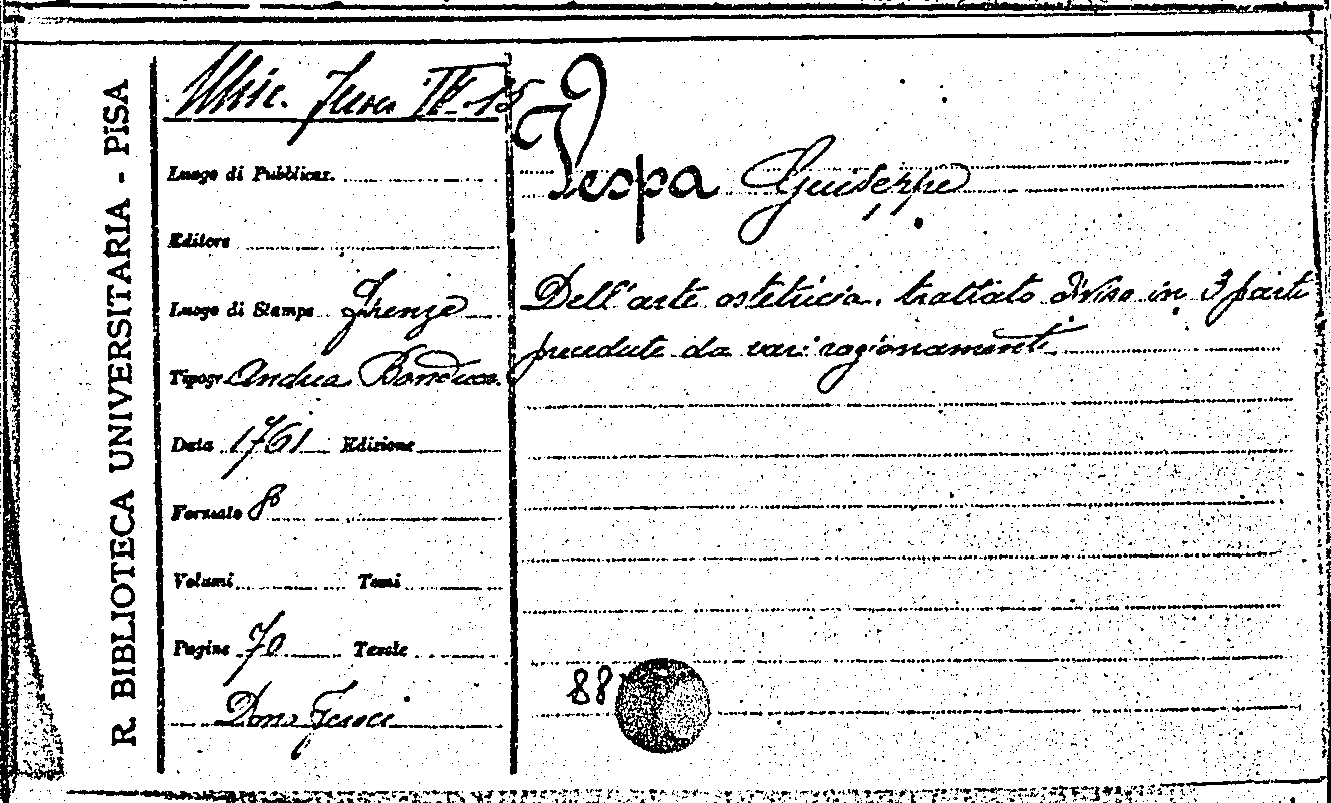 R. BIBLIOTECA UNIVERSITARIA - PISA
Misc. Feroci IV-15
Vespa Giuseppe
Luogo di Pubblicaz.
Editore
Luogo di Stampa Firenze
Dell'arte ostetricia. trattato diviso in 3 parti
precedute da vari ragionamenti
Tipogr. Andrea Bonducci.
Data 1761 Edizione
Formato 8º
Volumi Tomi
Pagine 70 Tavole
Dono Feroci
88